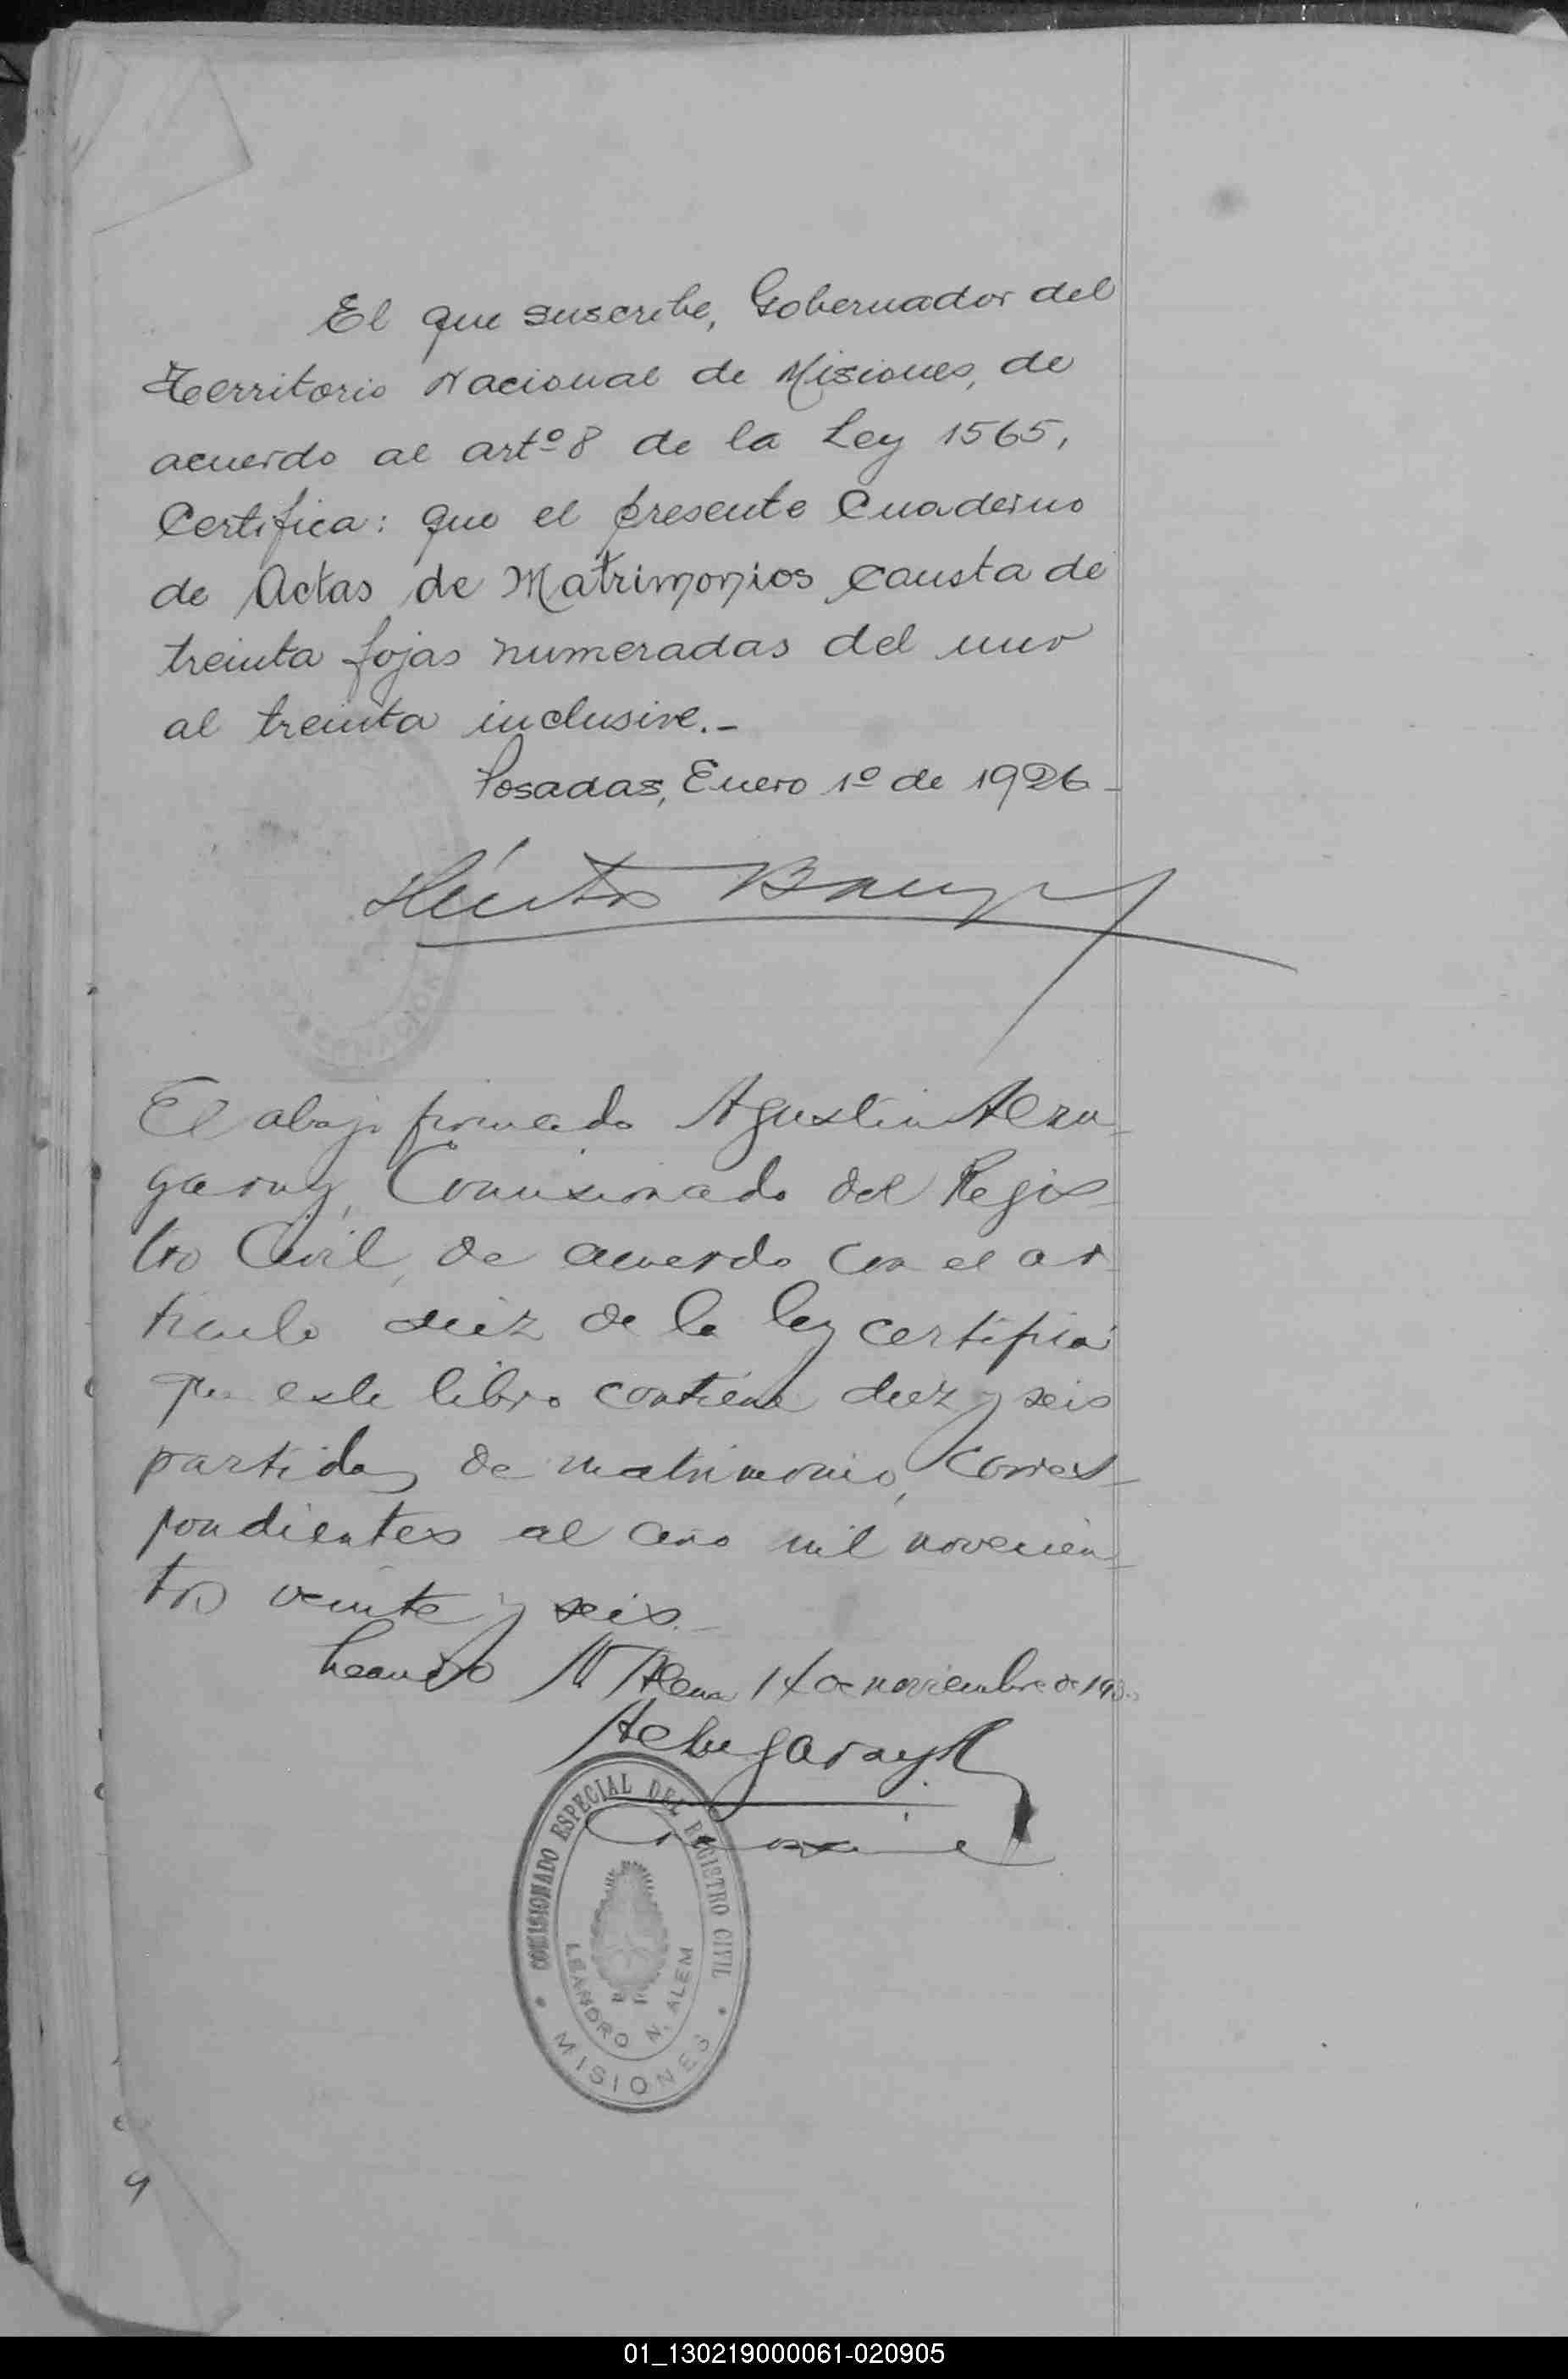 El que suscribe, Gobernador del
Territorio Nacional de Misiones, de
acuerdo al artº 8 de la Ley 1565,
Certifica: que el presente Cuaderno
de Actas de Matrimonios consta de
treinta fojas numeradas del uno
al treinta inclusive.-
Posadas, Enero 1º de 1926-
Héctor
El abajo firmado Agustin
garay, Comisionado del Regis
tro Civil, de acuerdo con el ar
ticulo diez de la ley certifica
que este libro contiene diez y seis
partidas de matrimonio, corres-
pondientes al año mil novecien
tos veinte y seis.-
Leandro N Alem 14 de noviembre de
COMISIONADO ESPECIAL DEL REGISTRO CIVIL
LEANDRO N. ALEM
MISIONES
01_130219000061-020905